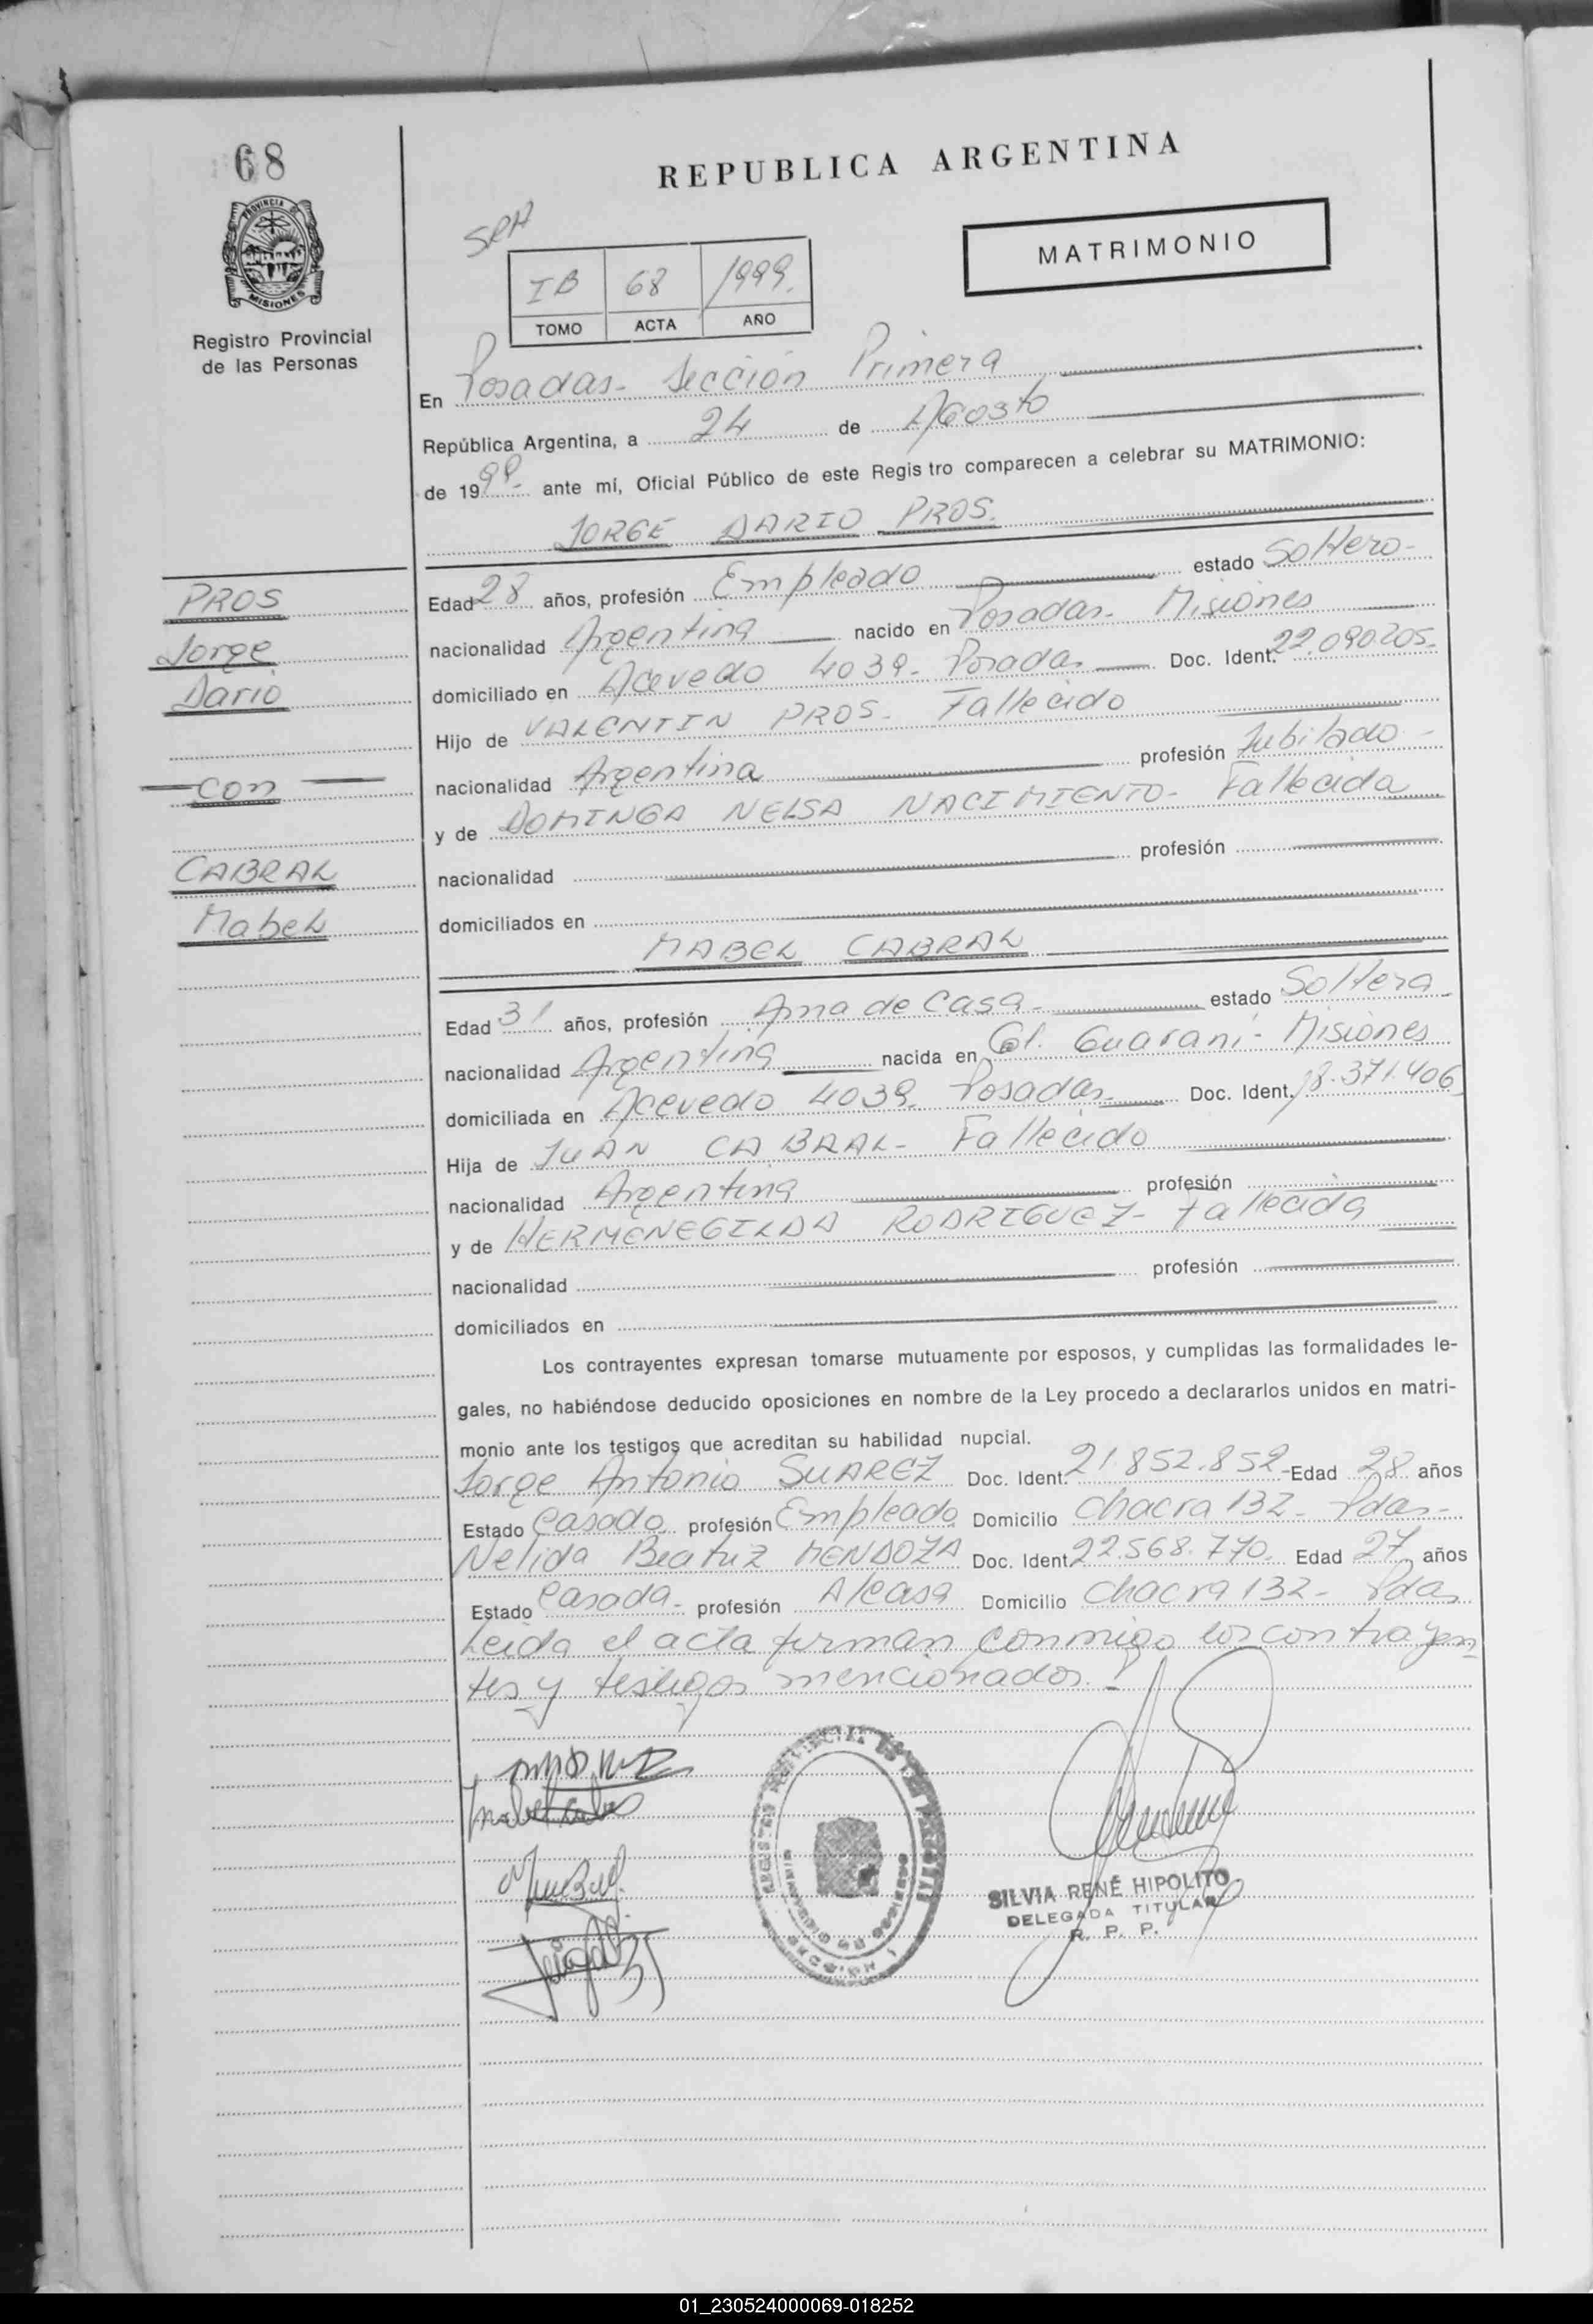 68
PROVINCIA DE
MISIONES
Registro Provincial
de las Personas
REPUBLICA ARGENTINA
MATRIMONIO
IB 68 1999.
TOMO ACTA AÑO
En Posadas- Sección Primera
República Argentina, a 24 de Agosto
de 1999- ante mí, Oficial Público de este Regis tro comparecen a celebrar su MATRIMONIO:
JORGE DARIO PROS.
PROS
Jorge
Dario
con
CABRAL
Mabel
Edad 28 años, profesión Empleado estado Soltero-
nacionalidad Argentina nacido en Posadas- Misiones
domiciliado en Acevedo 4039- Posadas Doc. Ident. 22.090205-
Hijo de VALENTIN PROS- Fallecido
nacionalidad Argentina profesión Jubilado-
y de DOMINGA NELSA NACIMIENTO- Fallecida
nacionalidad profesión
domiciliados en
MABEL CABRAL
Edad 31 años, profesión Ama de Casa- estado Soltera
nacionalidad Argentina nacida en Col. Guaraní- Misiones
domiciliada en Acevedo 4039 Posadas Doc. Ident. 18.371.406
Hija de JUAN CABRAL- Fallecido
nacionalidad Argentina profesión
y de HERMENEGILDA RODRIGUEZ- Fallecida
nacionalidad profesión
domiciliados en
Los contrayentes expresan tomarse mutuamente por esposos, y cumplidas las formalidades le-
gales, no habiéndose deducido oposiciones en nombre de la Ley procedo a declararlos unidos en matri-
monio ante los testigos que acreditan su habilidad nupcial.
Jorge Antonio SUAREZ Doc. Ident. 21.852.852- Edad 28 años
Estado Casado profesión Empleado Domicilio Chacra 132- Pdas-
Nelida Beatriz MENDOZA Doc. Ident. 22.568.770. Edad 27 años
Estado Casada- profesión A/casa Domicilio Chacra 132- Pdas
Leida el acta firman conmigo los contrayen
tes y testigos mencionados.-
SILVIA RENÉ HIPOLITO
DELEGADA TITULAR
R. P. P.
01_230524000069-018252